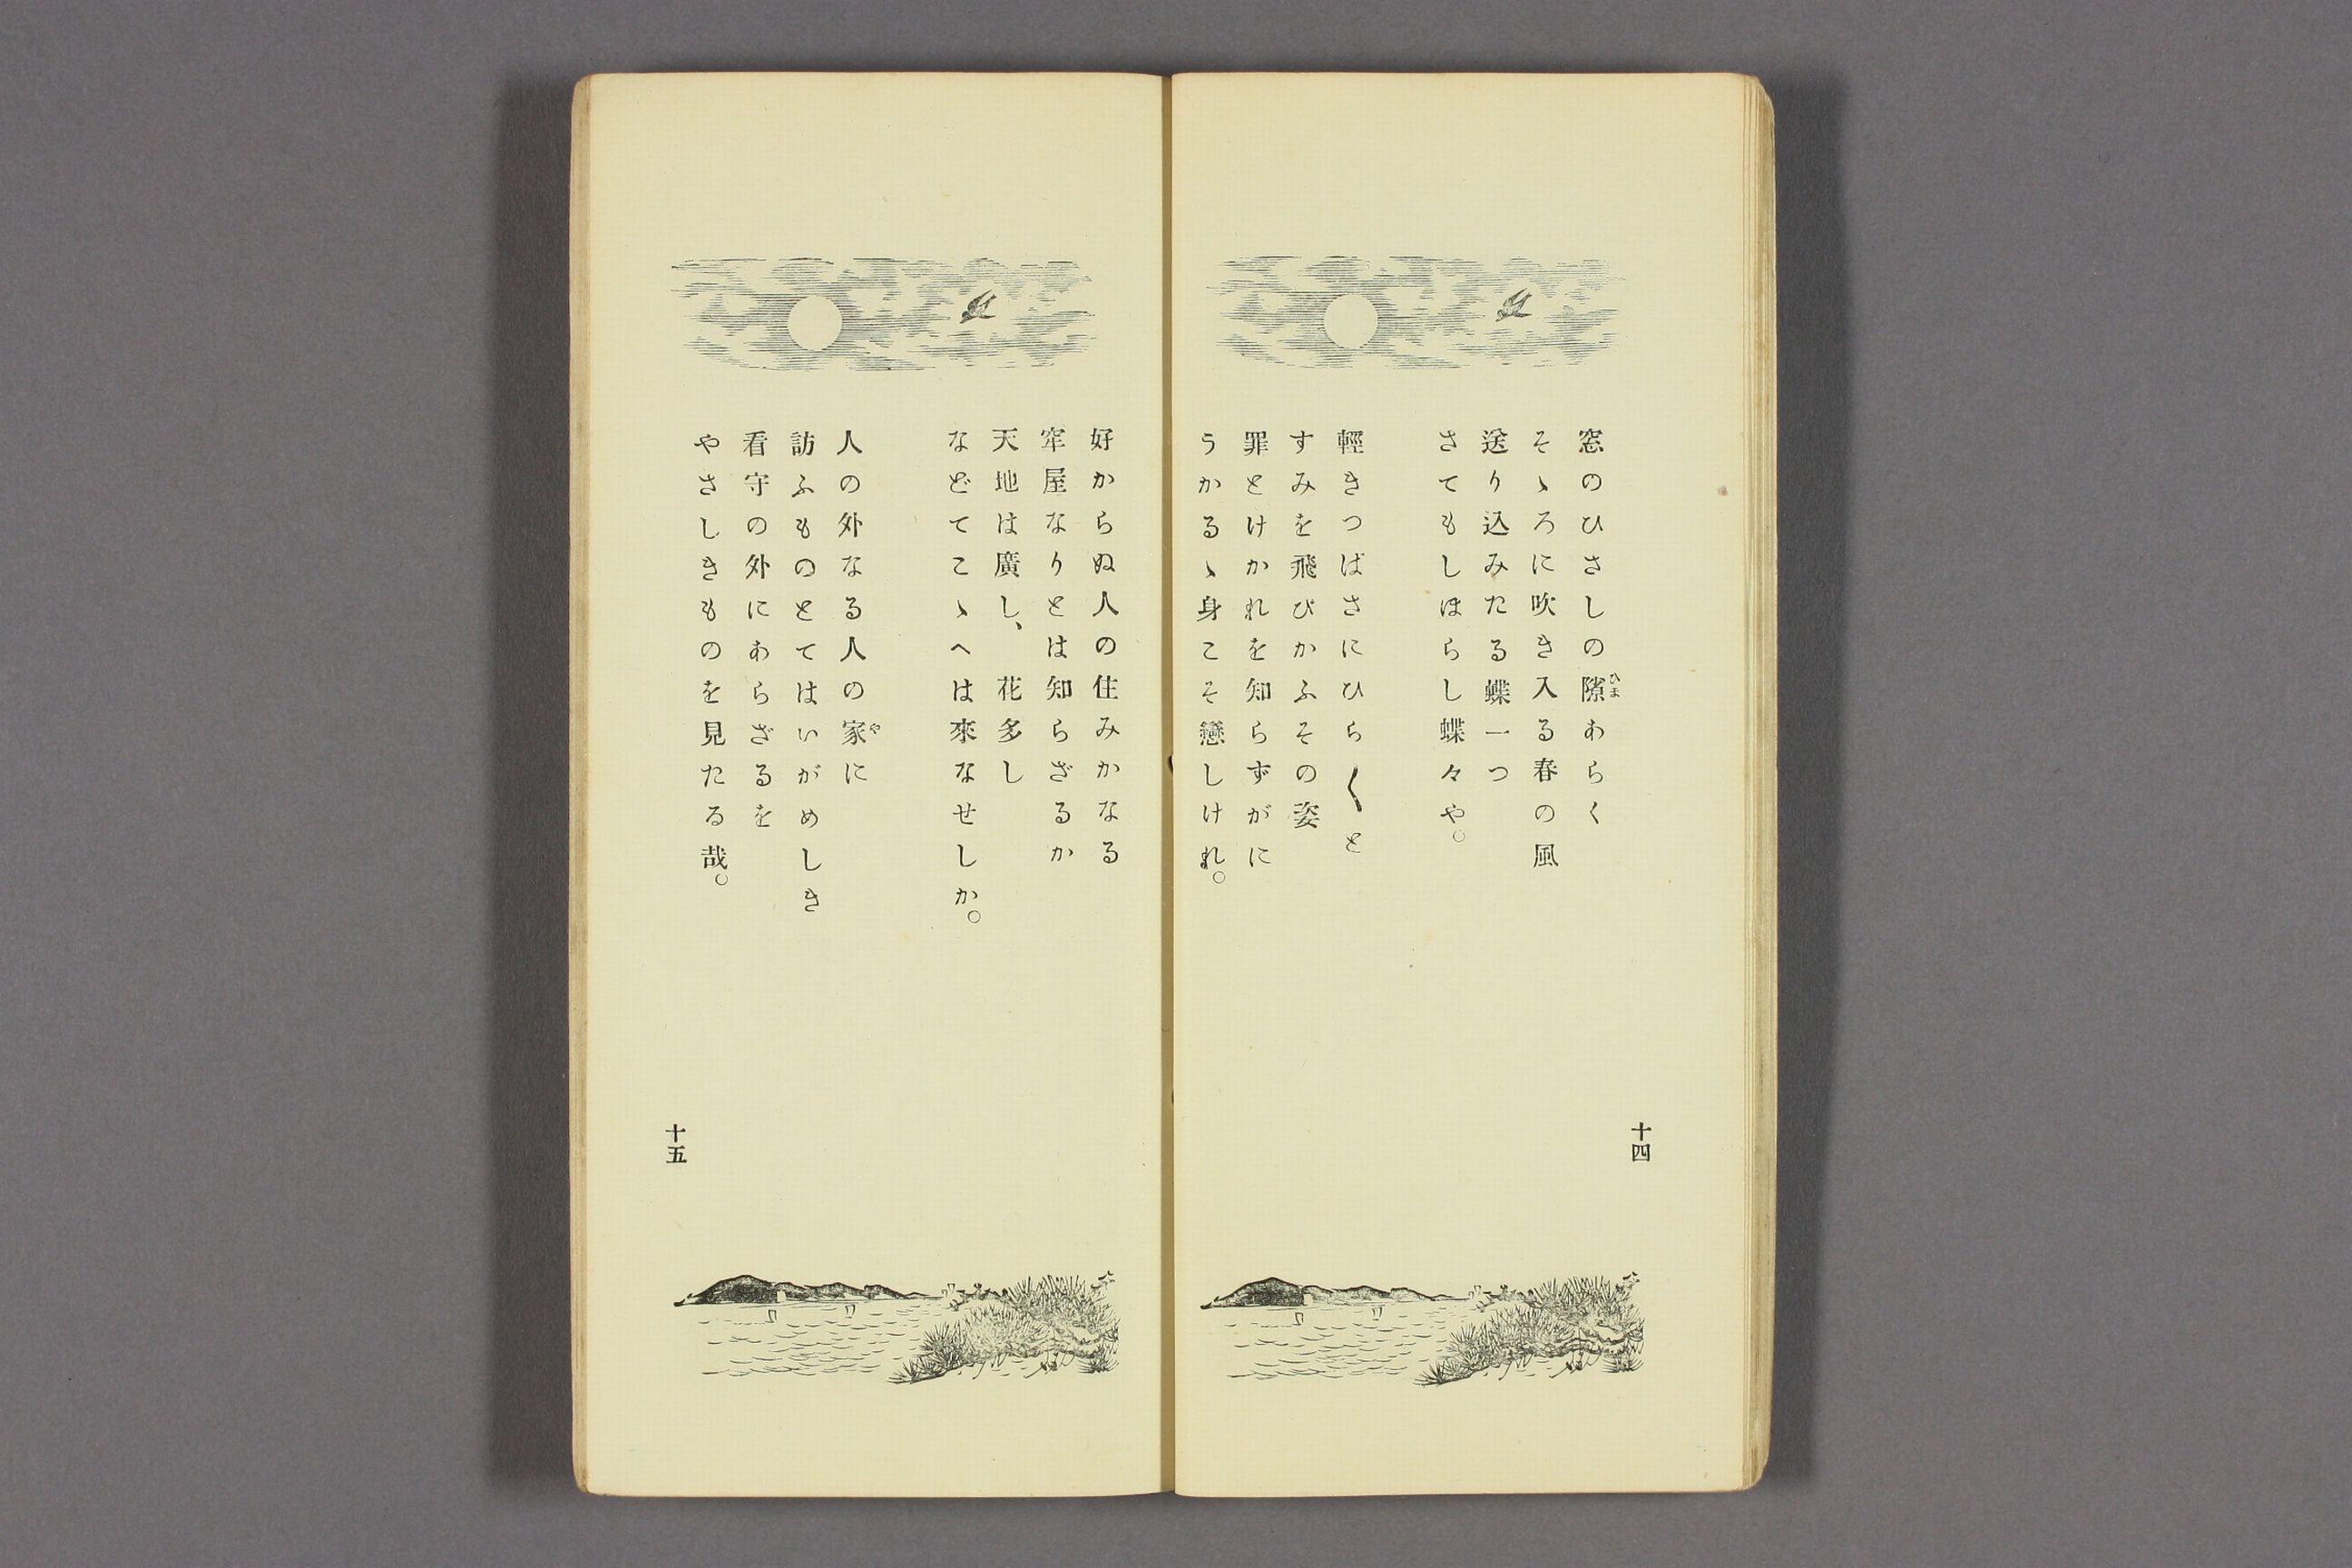 窓のひさしの隙あらく
ひま
そゝろに吹き入る春の風
送り込みたる蝶一つ
さてもしほらし蝶々や。
輕きつばさにひら〱と
すみを飛びかふその姿
罪とけかれを知らずがに
うかるゝ身こそ戀しけれ。
十四
好からぬ人の住みかなる
牢屋なりとは知らざるか
天地は廣し、花多し
などてこゝへは來なせしか。
人の外なる人の家に
や
訪ふものとてはいがめしき
看守の外にあらざるを
やさしきものを見たる哉。
十五